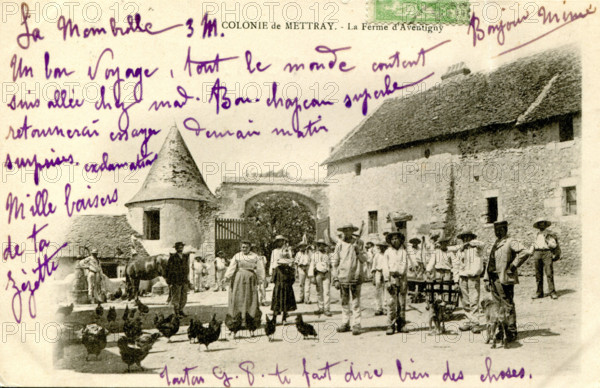 COLONIE de METTRAY. - La Ferme d'Aventigny
La Membrille 3 M.
Bonjour Mème
Un bon voyage, tout le monde content
suis allée chez mad. Bon-chapeau superbe
retournerai essayer demain matin
surpoises. exclamation
Mille baisers
de ta
Zézette
Tonton G. P. te fait dire bien des choses.